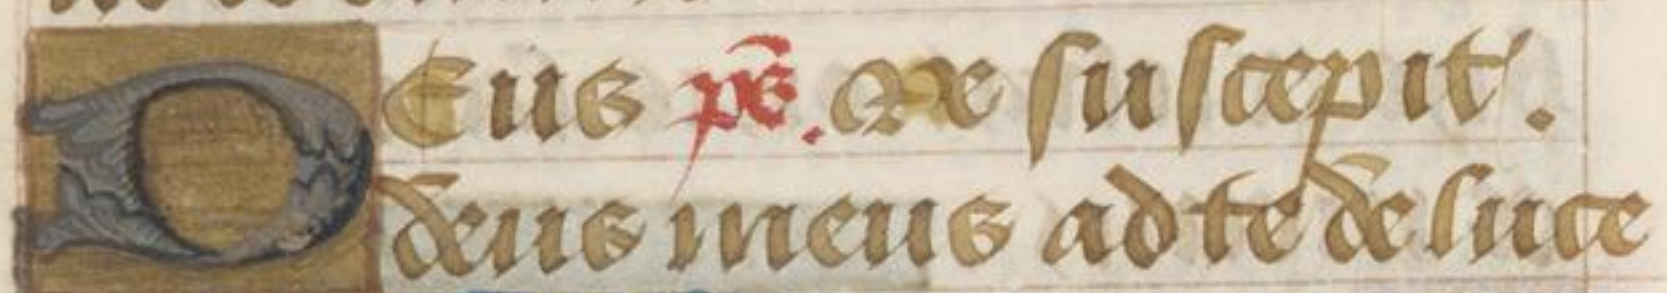 DEus ps̄. Me suscepit.
deus meus ad te de luce